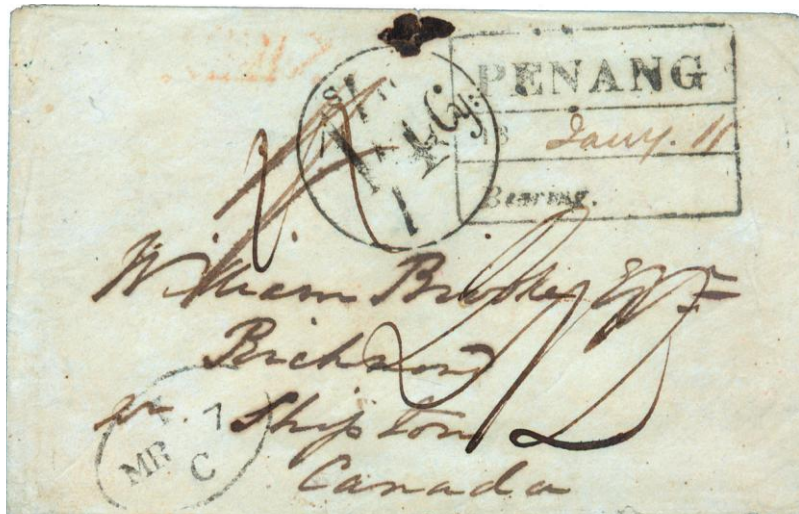 PENANG
18 Jany. 11
Bearing.
Stg
Cy:
William Brooke Esqr
Richmond
or Shipton
Canada
MR 7
C